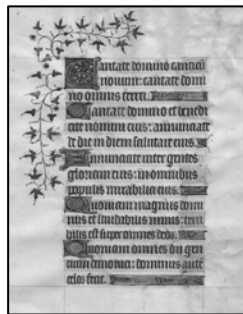 Cantate domino canticū
novum: cantate domi
no omnis terra.
Cantate domino et benedi
cite nomini eius: annunciate
de die in diem salutare eius.
Annunciate inter gentes
gloriam eius: in omnibus
populis mirabilia eius.
Quoniam magnus domi
nus et laudabilis nimis: terri
bilis est super omnes deos.
Quoniam omnes dii gen
tium demonia: dominus autē
celos fecit.